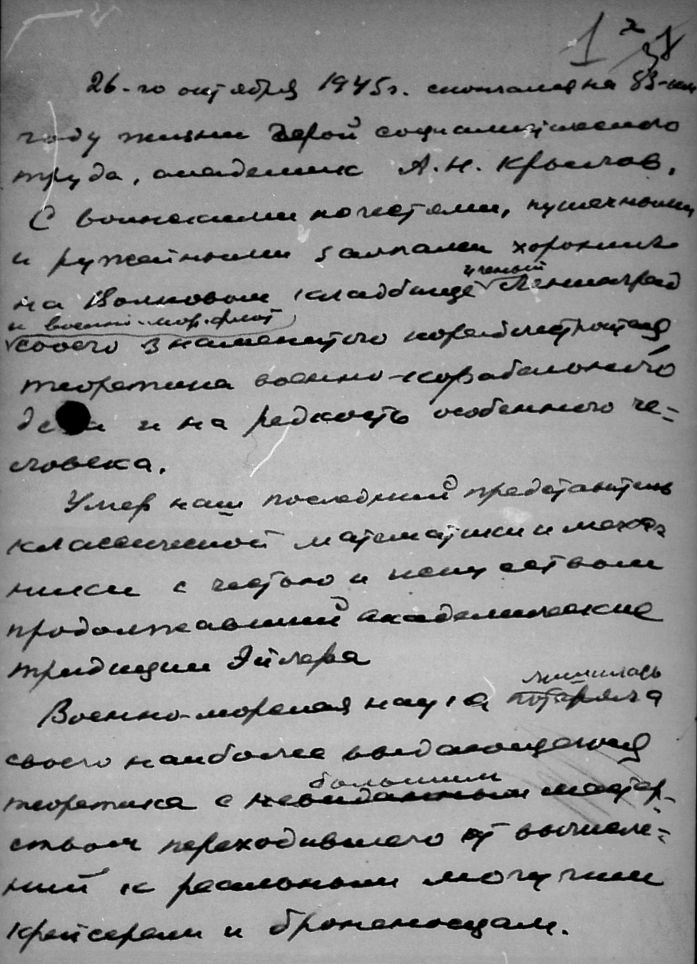 1
26-го октября 1945 г. скончался на 83-ем
году жизни Герой социалистического
труда, академик А. Н. Крылов.
С воинскими почестями, пушечными
и ружейными залпами хоронил
на Волковом кладбище ученый Ленинград
и военно-мор. флот
своего знаменитого кораблестроителя
теоретика военно-корабельного
дела и на редкость особенного че-
ловека.
Умер наш последний представитель
классической математики и меха-
ники с честью и искусством
продолжавший академические
традиции Эйлера
Военно-морская наука потеряла лишилась
своего наиболее выдающегося
теоретика с невиданным большим мастер-
ством переходившего от вычисле-
ний к реальным могучим
крейсерам и броненосцам.